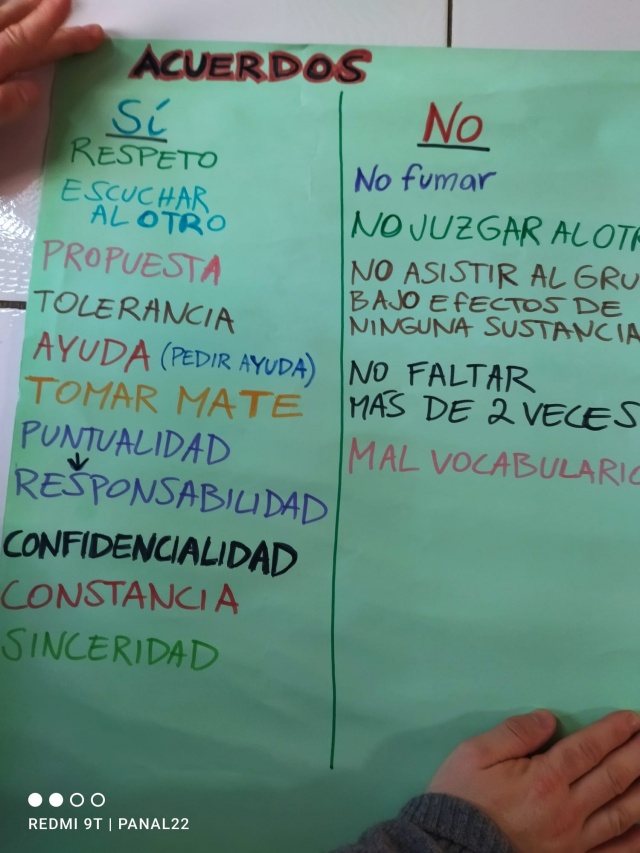 ACUERDOS
Sí
RESPETO
ESCUCHAR
AL OTRO
PROPUESTA
TOLERANCIA
AYUDA (PEDIR AYUDA)
TOMAR MATE
PUNTUALIDAD
↓
RESPONSABILIDAD
CONFIDENCIALIDAD
CONSTANCIA
SINCERIDAD
No
No fumar
NO JUZGAR AL OTR
NO ASISTIR AL GRU
BAJO EFECTOS DE
NINGUNA SUSTANCIA
NO FALTAR
MAS DE 2 VECES
MAL VOCABULARIO
REDMI 9T | PANAL22